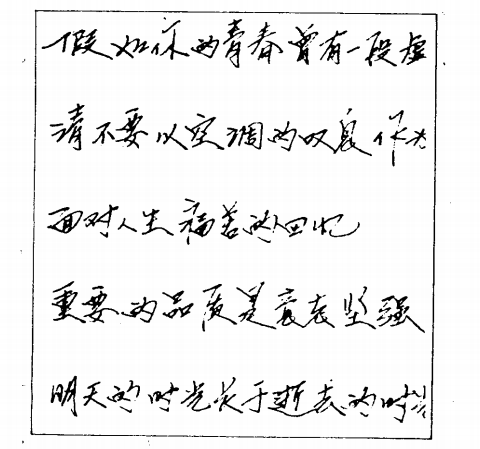 假如你的青春曾有一段虚
请不要以空洞的叹息作为
面对人生痛苦的回忆
重要的品质是意志坚强
明天的时光长于逝去的时光